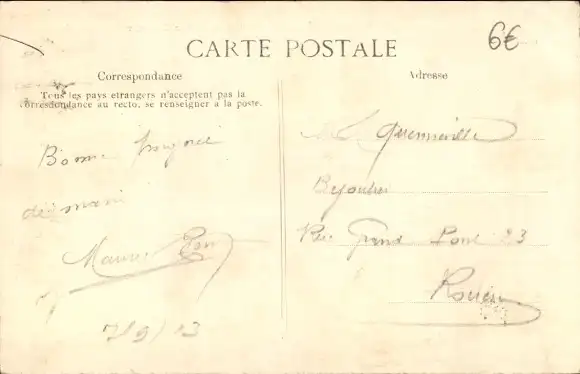 6€
CARTE POSTALE
Correspondance
Tous les pays etrangers n'acceptent pas la
correspondance au recto, se renseigner a la poste.
Bonne
de
Maurice
7/9/13
Adresse
Quenneville
Bijoutier
Rue Grand Pont 23
Rouen